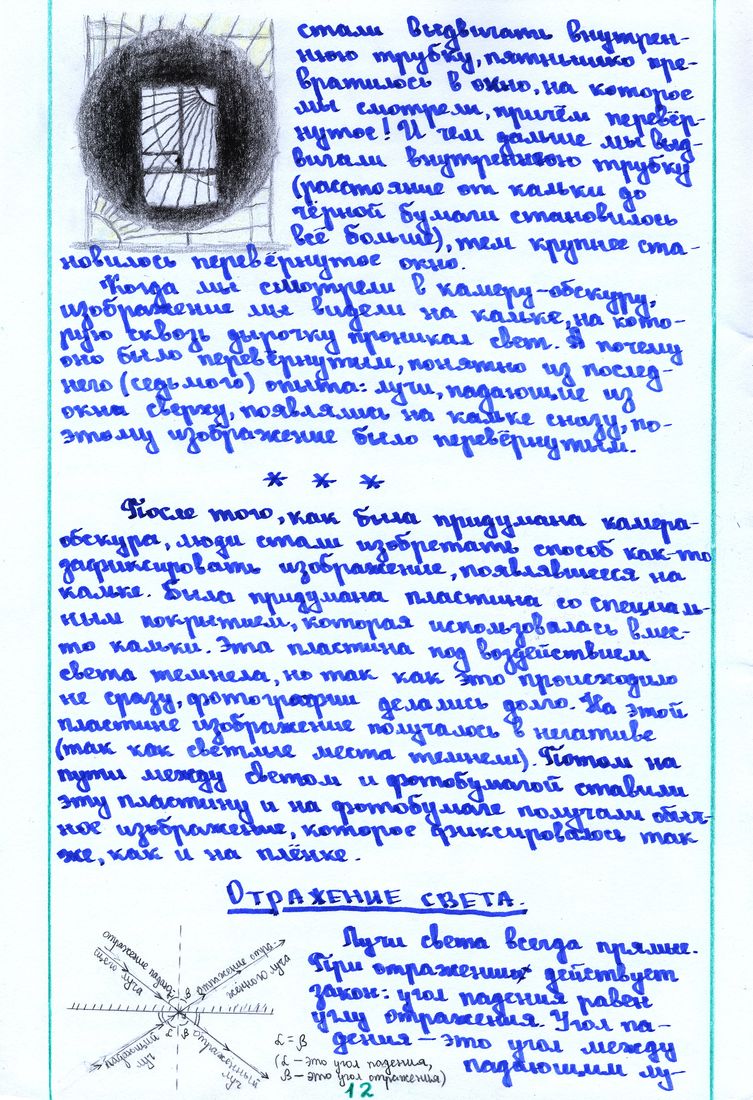 стали выдвигать внутрен-
нюю трубку, пятнышко пре-
вратилось в окно, на которое
мы смотрели, причём перевёр-
нутое! И чем дальше мы выд-
вигали внутреннюю трубку
(расстояние от кальки до
чёрной бумаги становилось
всё больше), тем крупнее ста-
новилось перевёрнутое окно.
Когда мы смотрели в камеру-обскуру,
изображение мы видели на кальке, на кото-
рую сквозь дырочку проникал свет. А почему
оно было перевёрнутым, понятно из послед-
него (седьмого) опыта: лучи, падающие из
окна сверху, появлялись на кальке снизу, по-
этому изображение было перевёрнутым.
* * *
После того, как была придумана камера-
обскура, люди стали изобретать способ как-то
зафиксировать изображение, появлявшееся на
кальке. Была придумана пластина со специаль-
ным покрытием, которая использовалась вмес-
то кальки. Эта пластина под воздействием
света темнела, но так как это происходило
не сразу, фотографии делались долго. На этой
пластине изображение получалось в негативе
(так как светлые места темнели). Потом на
пути между светом и фотобумагой ставили
эту пластину и на фотобумаге получали обыч-
ное изображение, которое фиксировалось так
же, как и на плёнке.
ОТРАЖЕНИЕ СВЕТА.
Лучи света всегда прямые.
При отражении действует
закон: угол падения равен
углу отражения. Угол па-
дения – это угол между
падающим лу-
отражение падаю-
щего луча
отражение отра-
жённого луча
α β
α β
падающий
луч
отражённый
луч
α = β
(α – это угол падения,
β – это угол отражения)
12